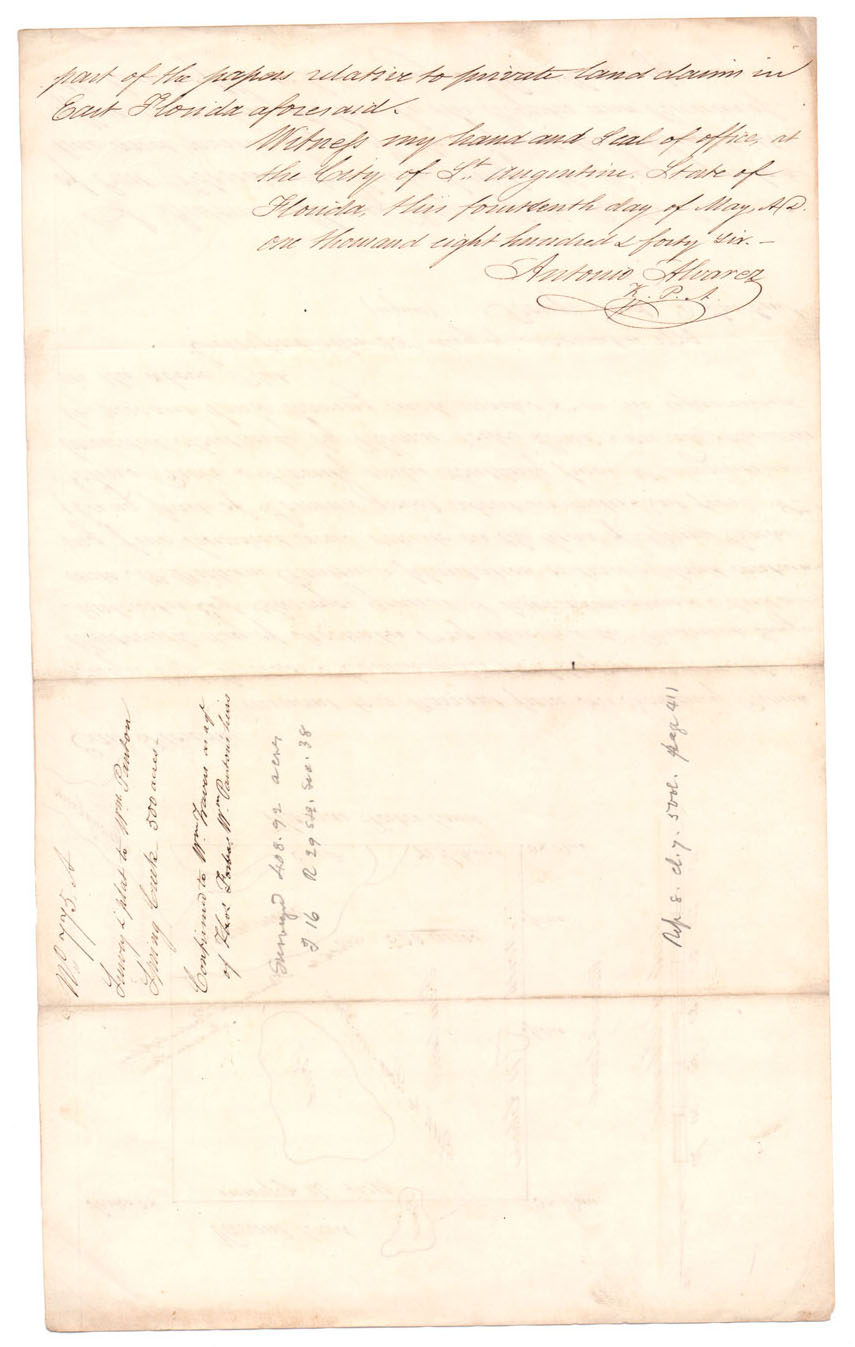 part of the papers relative to private land claims in
East Florida aforesaid.
Witness my hand and Seal of office, at
the City of St. Augustine. State of
Florida, this fourteenth day of May, A.D.
one thousand eight hundred & forty six. –
Antonio Alvarez
K. P. A.
No 775. A
Survey & plat to Wm. Panton
Spring Creek 500 acres –
Confirmed to Wm Travers
of Thos Forbes Wm. Panton's heirs
Surveyed 408.92 acres
T 16 R 29 S&E. Sec. 38
Rep 8. cl. 7. 5 vol. page 411